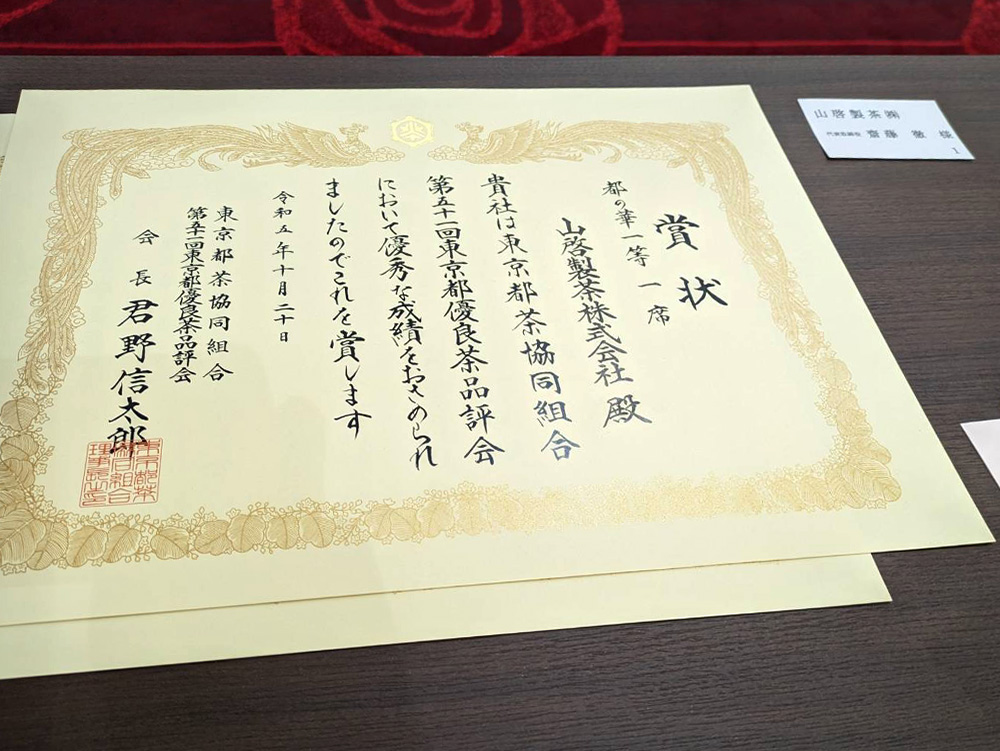 賞状
都の華一等一席
山啓製茶株式会社 殿
貴社は東京都茶協同組合
第五十一回東京都優良茶品評会
において優秀な成績をおさめられ
ましたのでこれを賞します
令和五年十月二十日
東京都茶協同組合
第五十一回東京都優良茶品評会
会長 君野信太郎
山啓製茶㈱
代表取締役 齋藤 徹 様
1